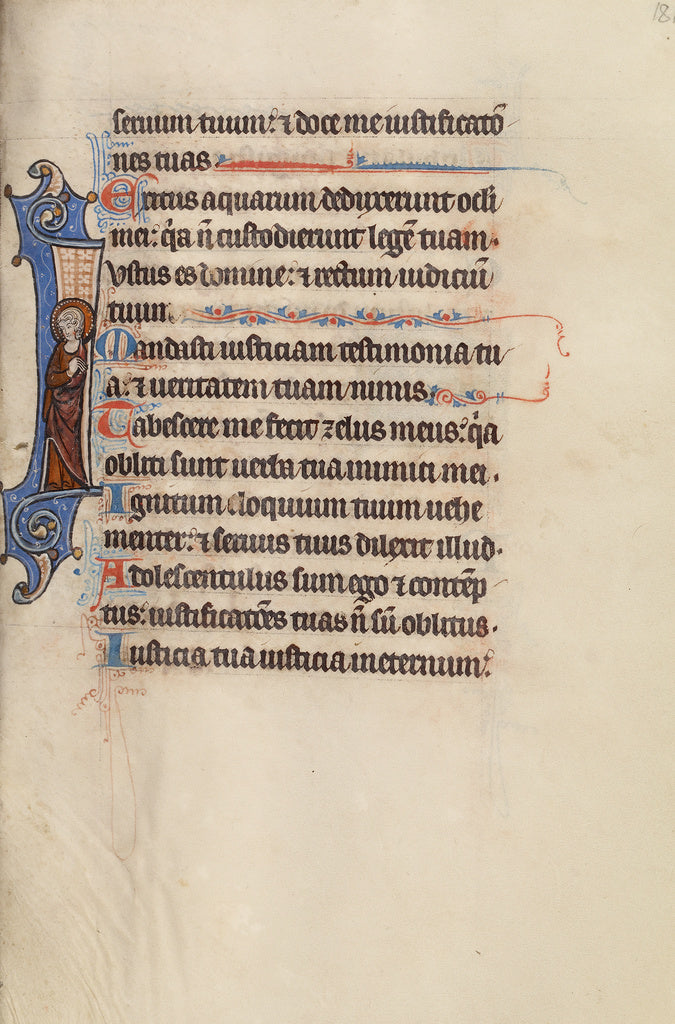 18
seruum tuum: ⁊ doce me iustificatō
nes tuas.
Exitus aquarum deduxerunt ocli
mei: q̇a n̄ custodierunt legē tuam.
Iustus es domine: ⁊ rectum iudiciū
tuum
Mandasti iusticiam testimonia tu
a: ⁊ ueritatem tuam nimis.
Tabescere me fecit zelus meus: q̇a
obliti sunt uerba tua inimici mei.
Ignitum eloquium tuum uehe
menter: ⁊ seruus tuus dilexit illud.
Adolescentulus sum ego ⁊ contēp
tus: iustificatōes tuas n̄ sū oblitus.
Iusticia tua iusticia in eternum: